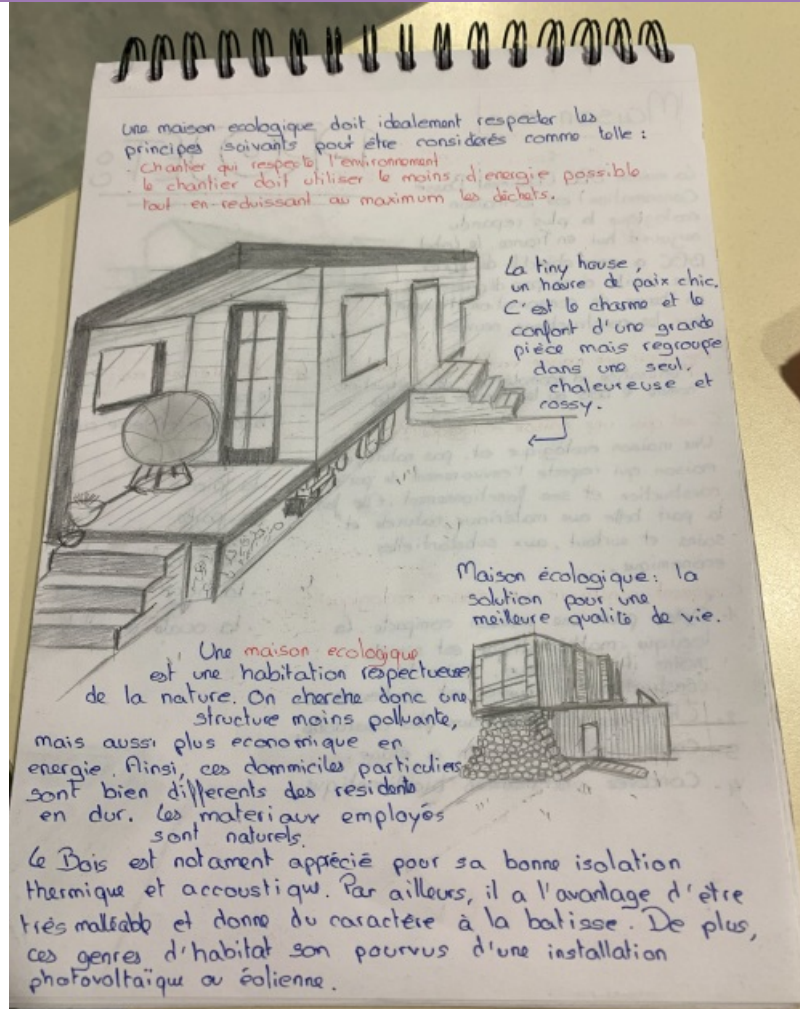 Une maison ecologique doit idealement respecter les
principes suivants pout être considerés comme telle :
- Chantier qui respecte l'environnement
- le chantier doit utiliser le moins d'energie possible
tout en reduissant au maximum les déchets.
La tiny house,
un havre de paix chic.
C'est le charme et le
confort d'une grande
pièce mais regroupe
dans une seul,
chaleureuse et
cossy.
Maison écologique : la
solution pour une
meilleure qualité de vie.
Une maison ecologique
est une habitation respectueuse
de la nature. On cherche donc une
structure moins polluante,
mais aussi plus economique en
energie. Ainsi, ces dommiciles particuliers
sont bien differents des residents
en dur. Les materiaux employés
sont naturels.
Le Bois est notament apprécié pour sa bonne isolation
thermique et accoustique. Par ailleurs, il a l'avantage d'être
très malléable et donne du caractére à la batisse. De plus,
ces genres d'habitat son pourvus d'une installation
photovoltaïque ou éolienne.